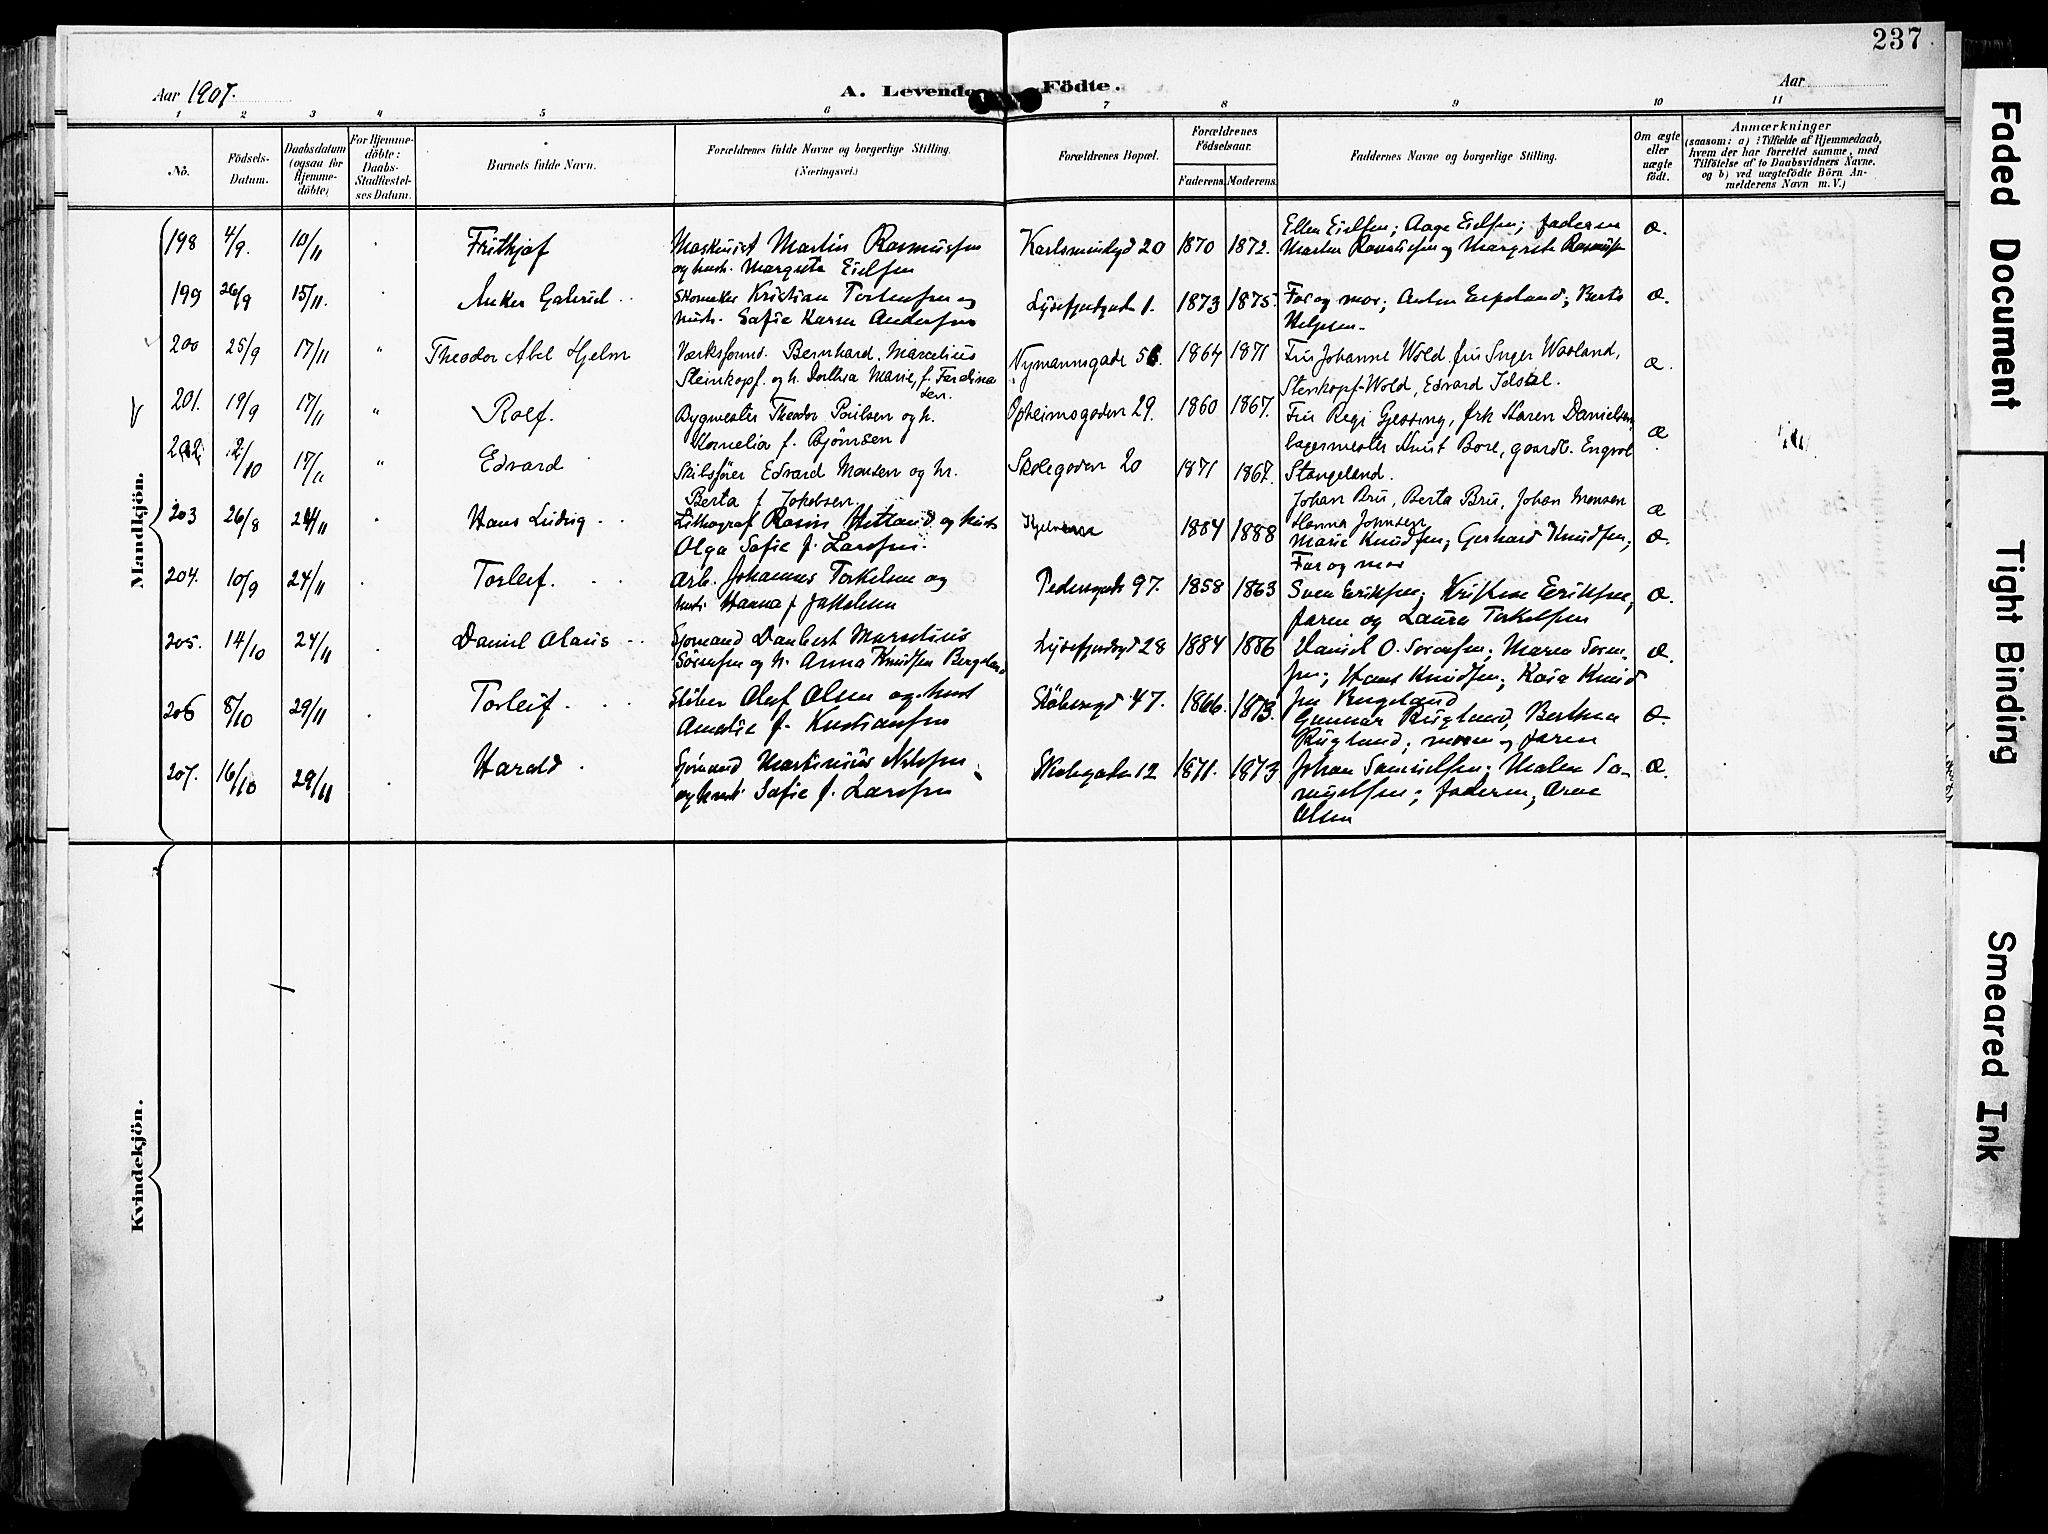 237
Aar 1907.
A. Levende Födte.
Aar
1 2 3 4 5 6 7 8 9 10 11
No.
Födsels-Datum.
Daabsdatum (ogsaa for Hjemme-döbte)
For Hjemme-döbte: Daabs-Stadfæstel-ses Datum.
Barnets fulde Navn.
Forældrenes fulde Navne og borgerlige Stilling. (Næringsvei.)
Forældrenes Bopæl.
Forældrenes Födselsaar.
Faderens. Moderens.
Faddernes Navne og borgerlige Stilling.
Om ægte eller uægte födt.
Anmærkninger
(saasom: a) i Tilfælde af Hjemmedaab,
hvem der har forrettet samme, med
Tilföielse af to Daabsvidners Navne.
og b) ved uægtefödte Börn An-
melderens Navn m. V.)
Mandkjön.
198 4/9. 10/11 Frithjof Maskinist Martin Rasmussen og hust. Margreta Eielsen 20 1870 1872. Ellen Eielsen; Aage Eielsen; faderen Martin Rasmussen og Margrete Rasmussen æ.
199 26/9 15/11. Anker Gabriel Kristian Torkelsen og hust. Sofie Karen Andersen 1. 1873 1875. Far og mor; Berte æ.
200 25/9 17/11 " Theodor Abel Hjelm Værksformd. Bernhard Marcelius Steinkopf. og h. Dorthea Marie, f. Nymannsgade 56. 1864 1871 Fru Johanne Wold, fru Inger Waaland, Stenkopf-Wold, Edvard Idsöe. æ.
201. 19/9 17/11 " Rolf. Bygmester Theodor Poulsen og h. Kornelia f. Björnsen Opheimsgaden 29. 1860 1867. Fru Regi Gjessing, frk Karen Danielsen, lagermester Knut Bore, gaardb. Engvol Stangeland. æ
202 2/10 17/11 " Edvard Skibsförer Edvard Monsen og h. Berta f. Jakobsen. Skolegaden 20 1871 1867. Johan Bru, Berta Bru, Johan Monsen Hanna Johnsen æ
203 26/8 24/11 Hans Ludvig Lithograf og hust Olga Sofie f. Larsen. 1884 1888 Marie Knudsen; Gerhard Knudsen; Far og mor æ.
204. 10/9 24/11 Torleif. Arb. Johannes Torkelsen og hust. Hanna f. Jakobsen Pedersgade 97. 1858 1863 Sven Eriksen; Eriksen; faren og Laura Torkelsen æ.
205. 14/10 24/11 Daniel Olaus Sjömand Danbert Marselius Sörensen og h. Anna Knudsen Bergeland 28 1884 1886 Daniel O. Sörensen; Maren Sören-sen; Hans Knudsen; Kaia Knud sen Bergeland æ.
206 8/10 29/11 Torleif. Olaf Olsen og hust Amalie f. Kristiansen 47. 1866. 1873. Gunnar Berthea moren og faren æ
207. 16/10 29/11 Harald Sjömand Martinius Nilsen og hust Sofie f. Larsen Skolegaden 12 1871. 1873 Johan Samuelsen; Malen Sa-muelsen; faderen; Arne Olsen æ.
Kvindekjön.
Faded Document
Tight Binding
Smeared Ink